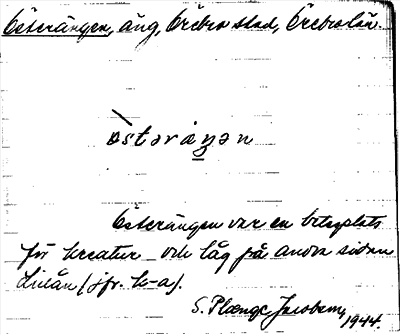 Österängen, äng, Örebro stad, Örebro län.
östəräŋən
Österängen var en betesplats
för kreatur och låg på andra sidan
Lillån (jfr. k-a).
S. Plænge Jacobson,
1944.